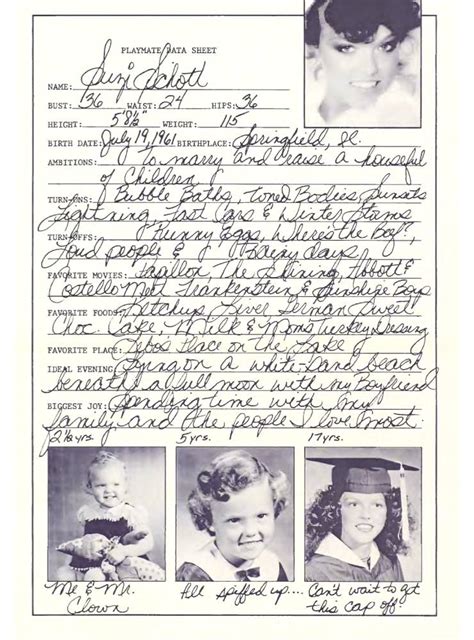 PLAYMATE DATA SHEET
NAME: Suzi Schott
BUST: 36 WAIST: 24 HIPS: 36
HEIGHT: 5'8½" WEIGHT: 115
BIRTH DATE: July 19, 1961 BIRTHPLACE: Springfield, Il.
AMBITIONS: To marry and raise a houseful
of Children
TURN-ONS: Bubble Baths, Toned Bodies, Sunsets
Lightning, Fast Cars & Winter Storms
TURN-OFFS: Runny Eggs, Where's the Beef?,
Loud people & Rainy days
FAVORITE MOVIES: Papillon, The Shining, Abbott &
Costello Meet Frankenstein & Sunshine Boys
FAVORITE FOODS: Ketchup, Liver, German Sweet
Choc. Cake, Milk & Mom's turkey Dressing
FAVORITE PLACE: Place on the Lake
IDEAL EVENING: Lying on a white-sand beach
beneath a full moon with my Boyfriend
BIGGEST JOY: Spending time with my
family and the people I love most.
2½ yrs. 5 yrs. 17 yrs.
Me & Mr. Clown
All spiffed up....
Can't wait to get
this cap off.